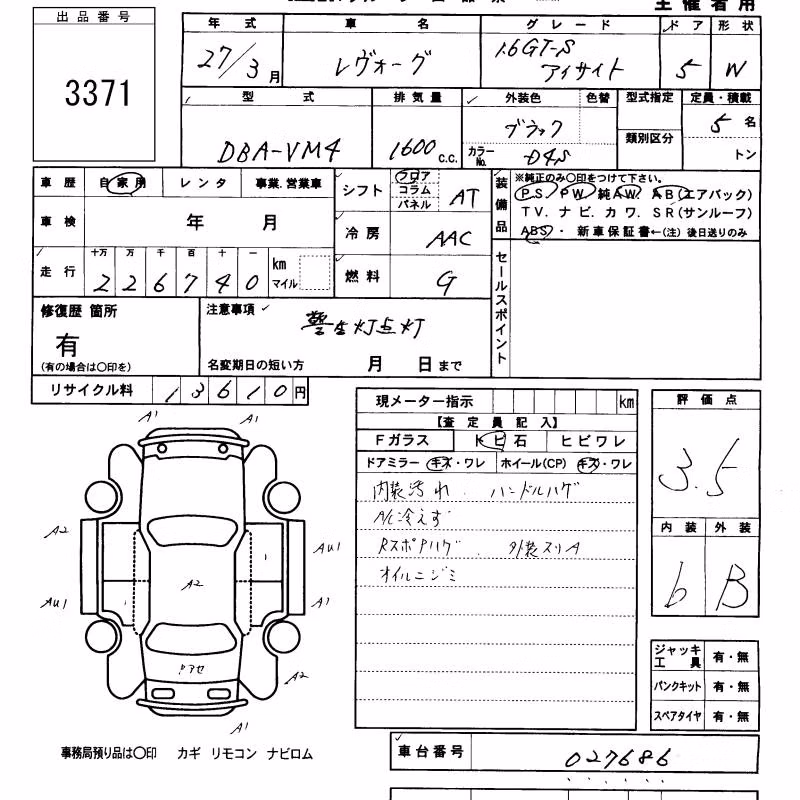 主催者用
出品番号
3371
年式 車名 グレード ドア 形状
27/3月 レヴォーグ 1.6GT-S アイサイト 5 W
型式 排気量 外装色 色替 型式指定 定員・積載
DBA-VM4 1600 c.c. ブラック カラーNo. D4S 類別区分 5名 トン
車歴 自家用 レンタ 事業.営業車
車検 年 月
走行 十万 万 千 百 十 一 km マイル
2 2 6 7 4 0
シフト フロア コラム パネル AT
冷房 AAC
燃料 G
装備品 ※純正のみ〇印をつけて下さい。
PS. PW. 純AW. AB(エアバック)
TV. ナビ. カワ. SR(サンルーフ)
ABS・ 新車保証書←(注) 後日送りのみ
セールスポイント
修復歴 箇所
有
(有の場合は〇印を)
注意事項
警告灯点灯
名変期日の短い方 月 日まで
リサイクル料 13610円
現メーター指示 km
【査定員記入】
Fガラス トビ石 ヒビワレ
ドアミラー キズ・ワレ ホイール(CP) キズ・ワレ
内装汚れ. ハンドルハゲ
A/C冷えず
RスポPハゲ. 外装スリA
オイルニジミ
評価点
3.5
内装 外装
b B
A1 A1
A2 AU1
AU1 A2 A1
クアセ A2
A1
ジャッキ工具 有・無
パンクキット 有・無
スペアタイヤ 有・無
事務局預り品は〇印 カギ リモコン ナビロム
車台番号 027686